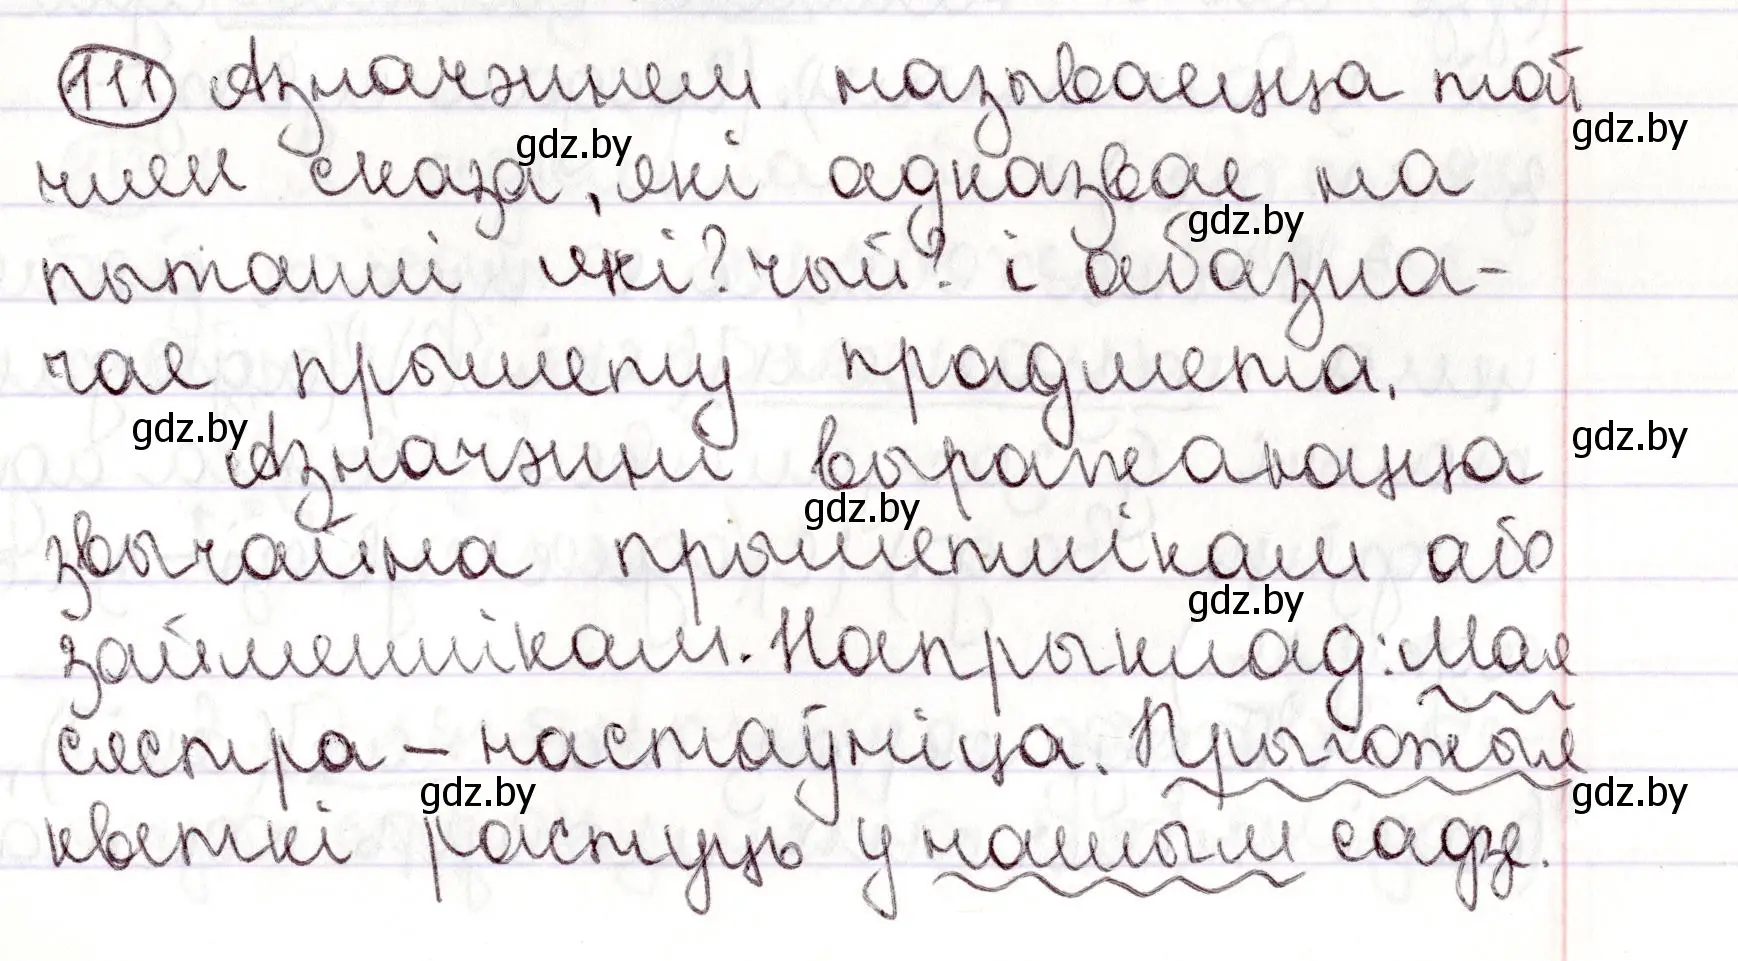 111 Азначэннем называецца той
gdz.by
член сказа, які адказвае на
gdz.by
gdz.by
пытанні які? чый? і абазна-
чае прымету прадмета.
gdz.by
gdz.by
Азначэнні выражаюцца
gdz.by
звычайна прыметнікам або
gdz.by
займеннікам. Напрыклад: Мая
сястра – настаўніца. Прыгожыя
gdz.by
gdz.by
кветкі растуць у нашым садзе.